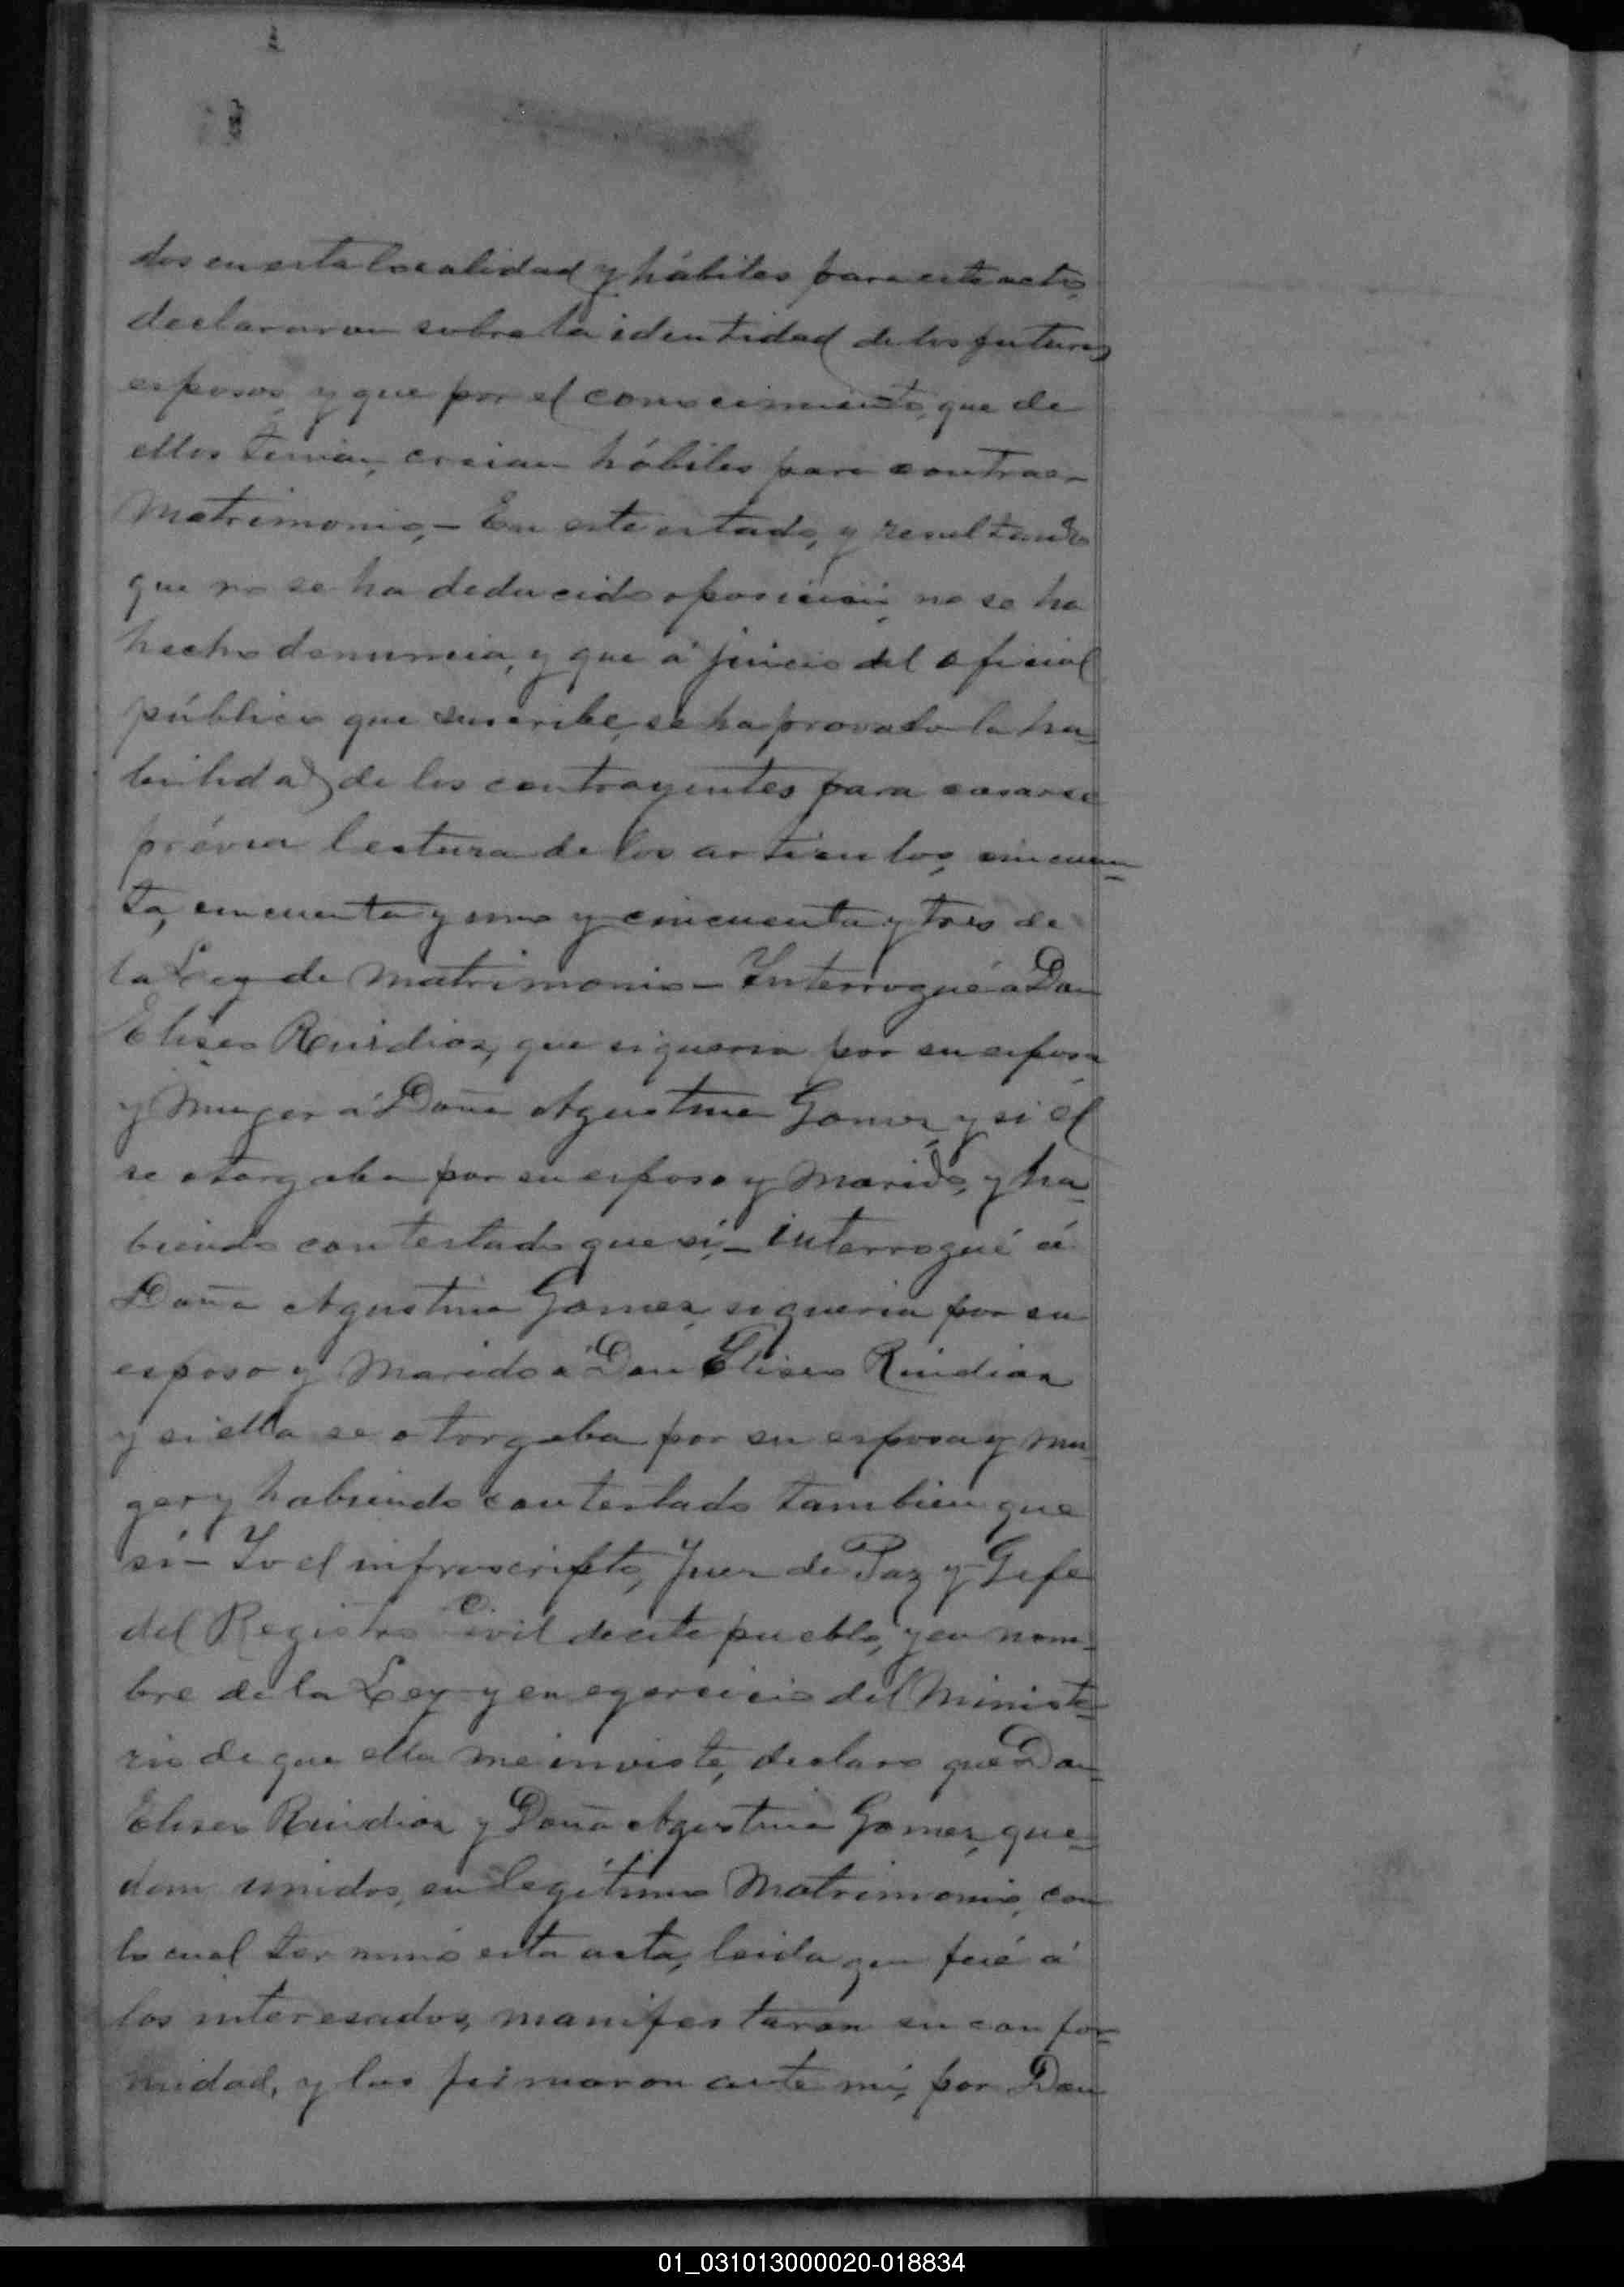 dos en esta localidad y hábiles para este acto,
declararon sobre la identidad de los futuros
esposos, y que por el conocimiento, que de
ellos tenian, creian hábiles para contraer
Matrimonio,- En este estado, y resultando
que no se ha deducido oposición, no se ha
hecho denuncia, y que á juicio del oficial
público que suscribe, se ha provado la ha=
bilidad de los contrayentes para casarse
prévia lectura de los articulos, cincuen=
ta, cincuenta y uno y cincuenta y tres de
la Ley de Matrimonio- Interrogué á Don
Eliseo Ruidiaz, que si queria por su esposa
y Muger á Doña Agustina Gomez, y si él
se otorgaba por su esposo y Marido, y ha=
biendo contestado que sí,- interrogué á
Doña Agustina Gomez, si queria por su
esposo y Marido á Don Eliseo Ruidiaz
y si ella se otorgaba por su esposa y mu=
ger y habiendo contestado tambien que
sí- Yo el infrascripto, Juez de Paz y Gefe
del Registro Civil de este pueblo, y en nom=
bre de la Ley y en egercicio del Ministe=
rio de que ella me inviste, declaro que Don=
Eliseo Ruidiaz y Doña Agustina Gomez, que=
dan unidos, en legítimo Matrimonio, con
lo cual terminó esta acta, leida que fué á
los interesados, manifestaron su confor=
midad, y las firmaron ante mí, por Don
01_031013000020-018834